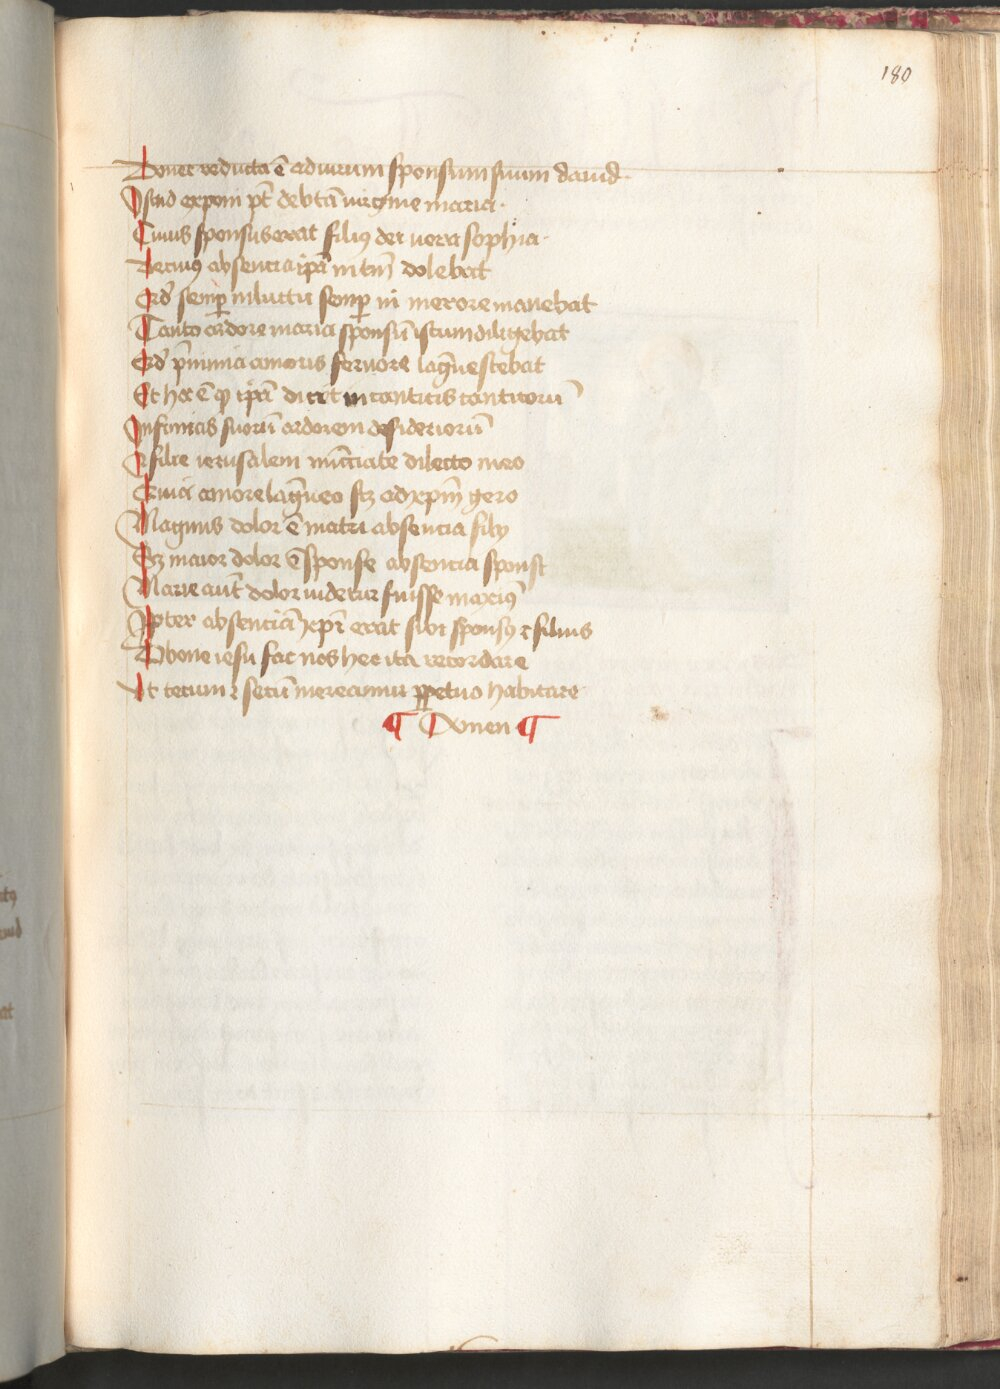 180
Donec reducta ē ad uirum sponsum suum dauid
Istud exponi pt̄ de bt̄a uirgine maria
Cuius sponsus erat filiꝰ dei uera sophia
De cuiꝰ absencia ip̄a in tm̄ dolebat
Qđ semꝑ in luctu semꝑ in merore manebat
Tanto ardore maria sponsū istum diligebat
Qđ p̄ nimia amoris feruore lāguescebat
Et hoc ē qđ ip̄a dicit in canticis canticoꝝ
Insinuās suoꝝ ardorem desidērioꝝ
O filie ierusalem nūctiate dilecto meo
Quia amore lāgueo sꝫ ad xp̄m gero
Magnus dolor ē matri absencia filij
Sꝫ maior dolor ē sponse absencia sponsi
Marie aut̄ dolor uidetur fuisse maxiꝰ
Ꝓpter absenciā xp̄i erat sibi sponsꝰ ⁊ filius
O bone iesu fac nos hec ita recordare
Ut tecum ⁊ secū mereamur ꝑpetuo habitare
¶ Amen ¶